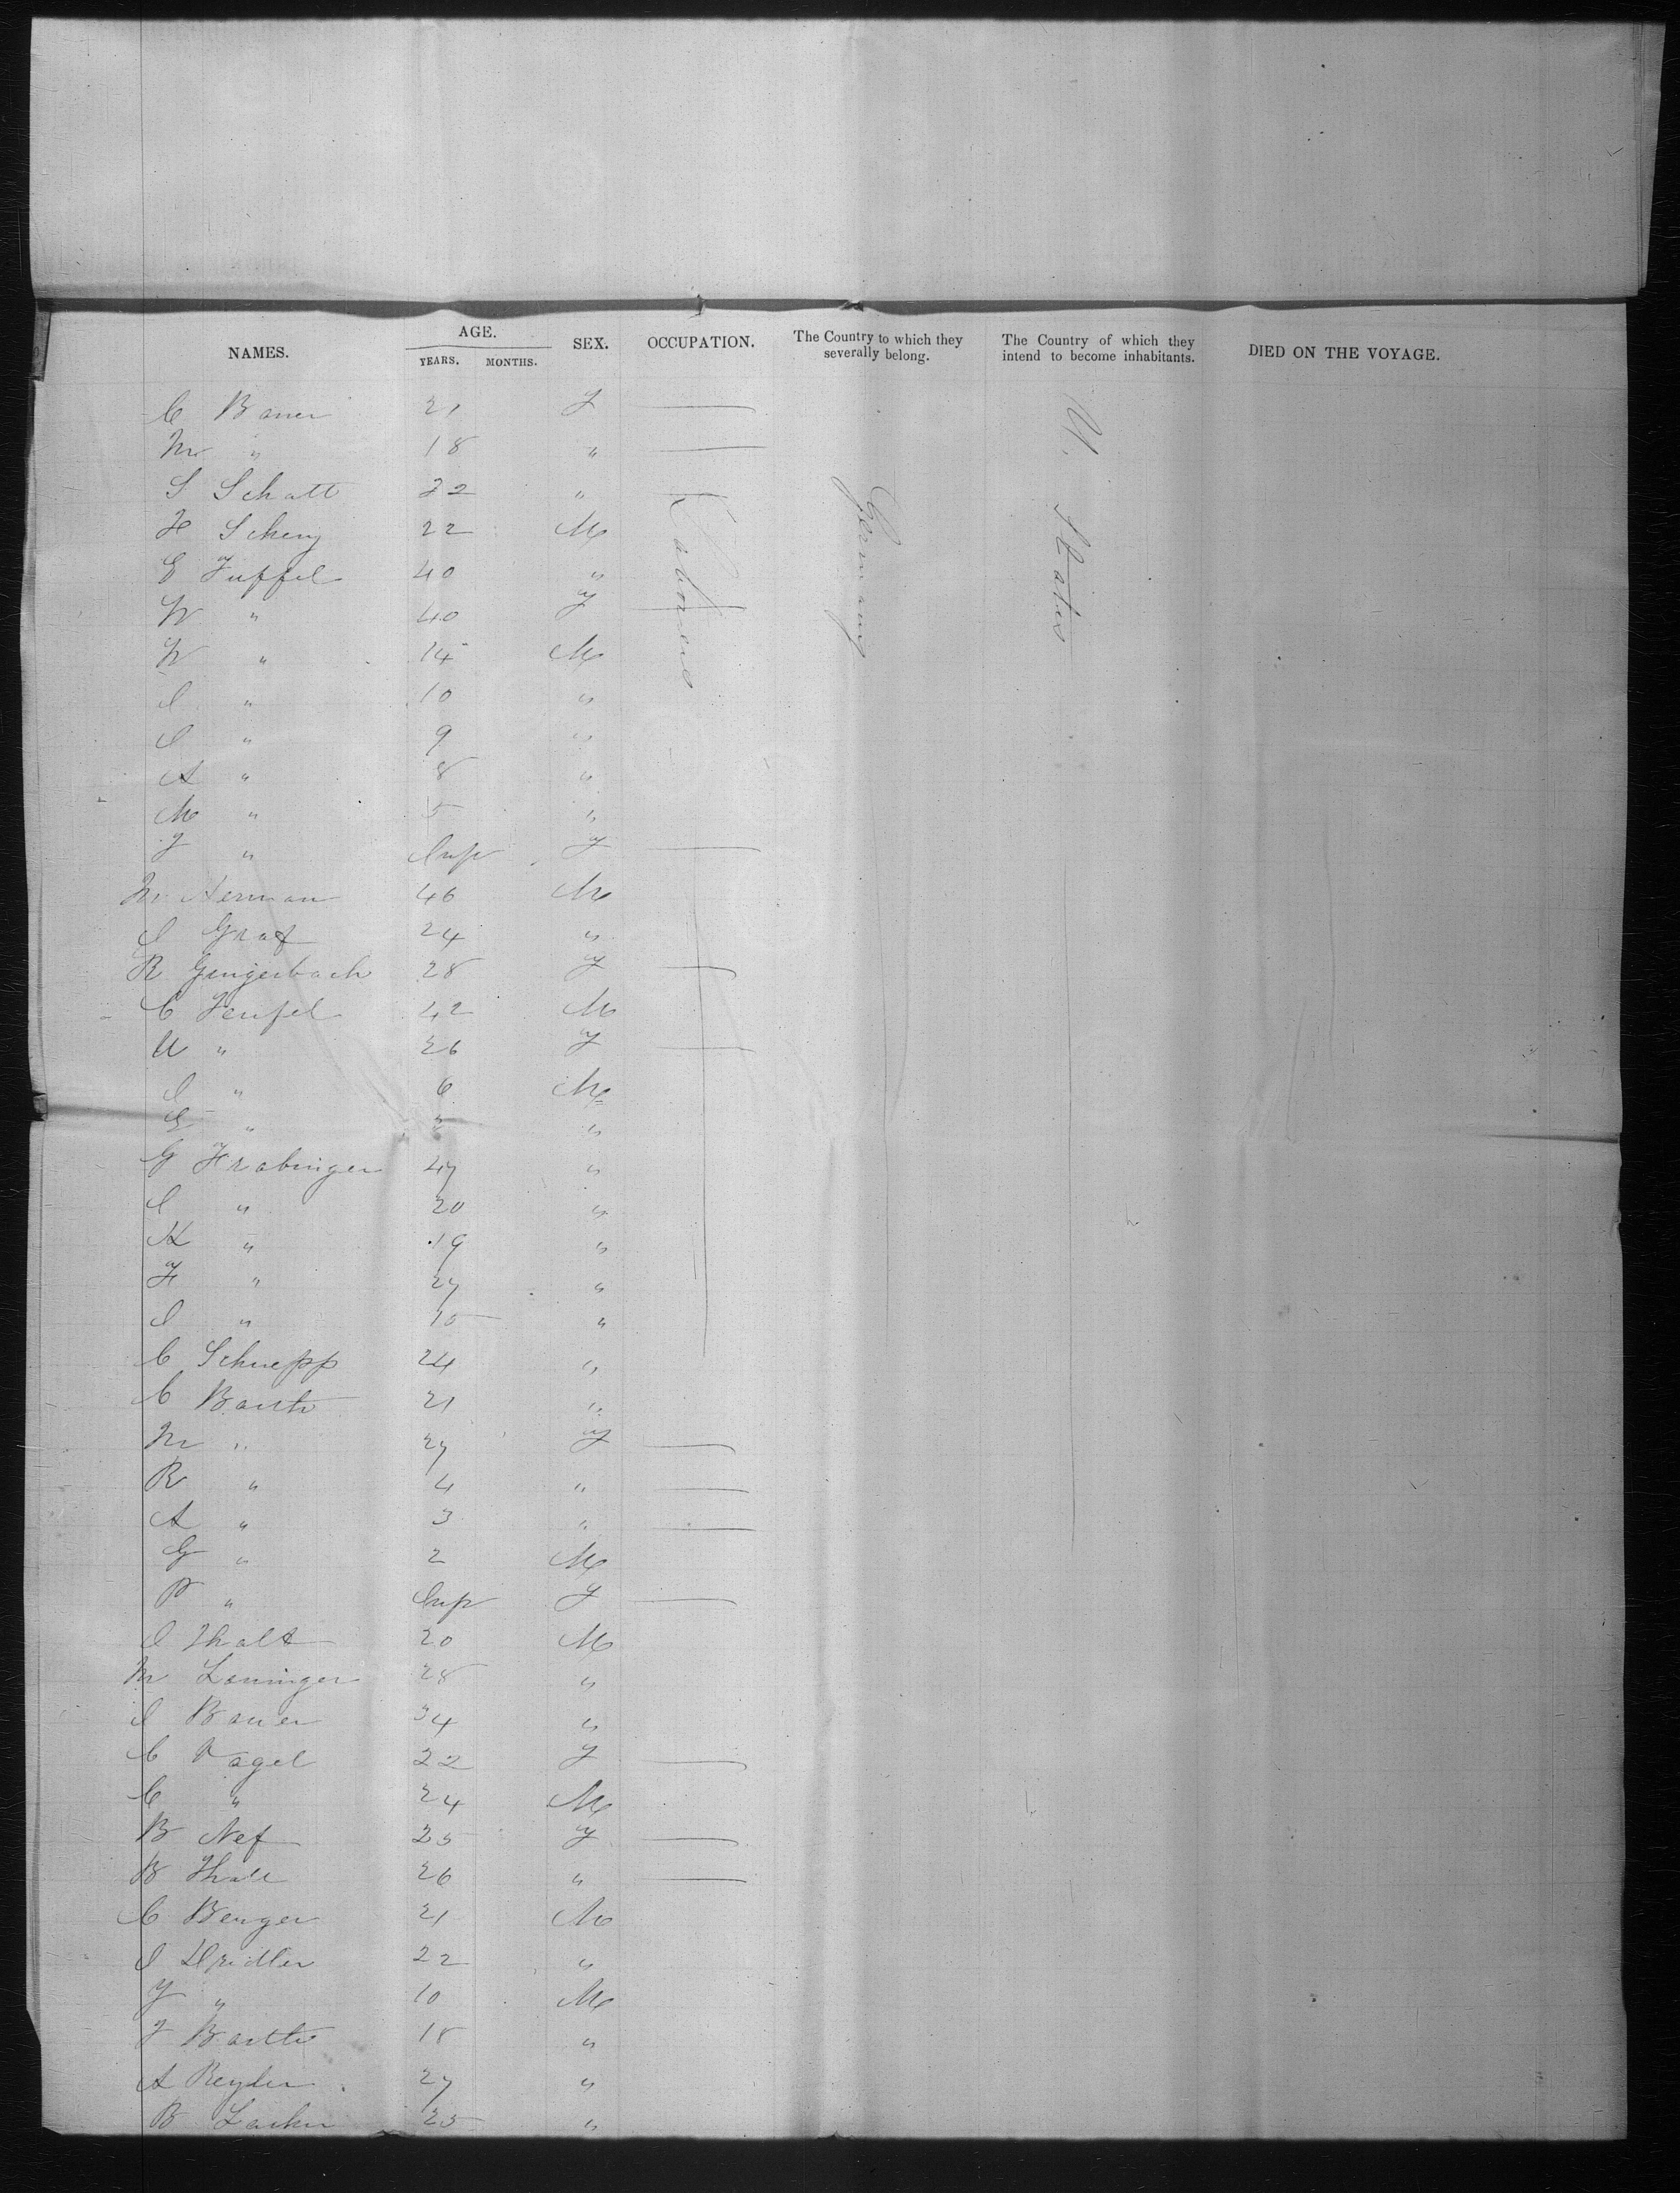 NAMES. AGE. SEX. OCCUPATION. The Country to which they severally belong. The Country of which they intend to become inhabitants. DIED ON THE VOYAGE.
YEARS. MONTHS.
C Bauer 21 F —
M " 18 " —
S Schatt 22 " —
22 M
40 "
W " 40 F —
W " 14 M
I " 10 "
I " 9 "
A " 8 "
M " 5 "
F " Inf F —
M Herman 46 M
I Graf 24 "
R Gengerbach 28 F —
C Teufel 42 M
U " 26 F —
I " 6 M
E " "
G 47 "
I " 20 "
K " 19 "
F " 27 "
I " 15 "
C Schnepp 24 "
C Barth 21 "
M " 27 F —
R " 4 " —
A " 3 " —
G " 2 M
P " Inf F —
I 20 M
M 28 "
I Bauer 34 "
C Vogel 22 F —
C " 24 M
B Nef 25 F —
B 26 " —
C Benger 21 M
I 22 "
F " 10 M
F Barth 18 "
A 27 "
B 25 "
Laborers
Germany
U. States